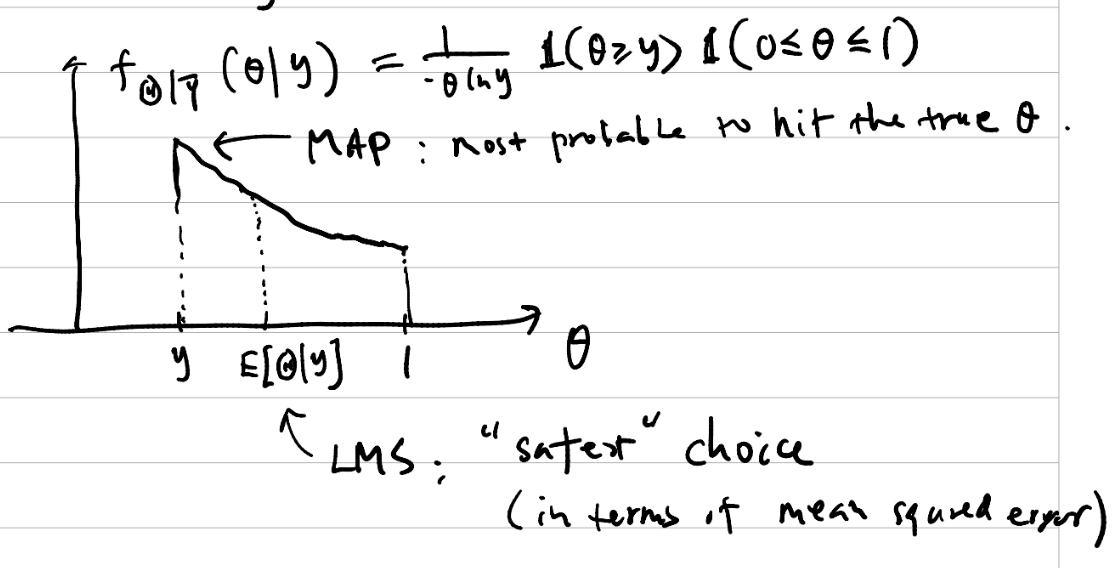 f_{Θ|Y}(θ|y) = 1/(-θ ln y) 1(θ≥y) 1(0≤θ≤1)
← MAP : most probable to hit the true θ.
y E[Θ|y] 1 θ
↖ LMS : "safest" choice
(in terms of mean squared error)